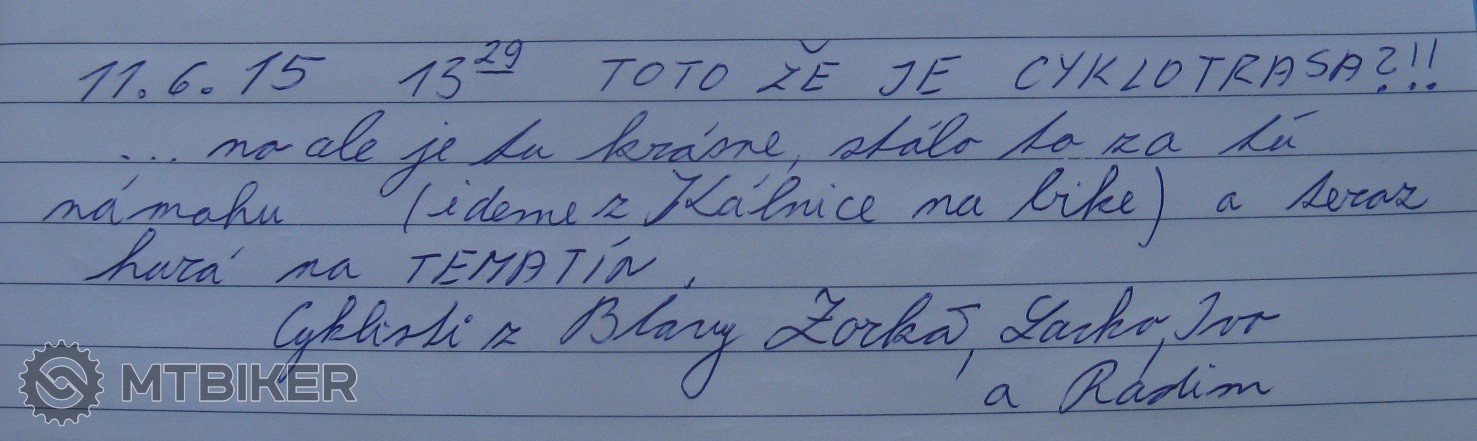 11.6.15 13²⁹ TOTO ŽE JE CYKLOTRASA?!!
... no ale je tu krásne, stálo to za tú
námahu (ideme z Kálnice na bike) a teraz
hurá na TEMATÍN.
Cyklisti z Blavy Žorká, Lacko, Ivo
a Radim
MTBIKER